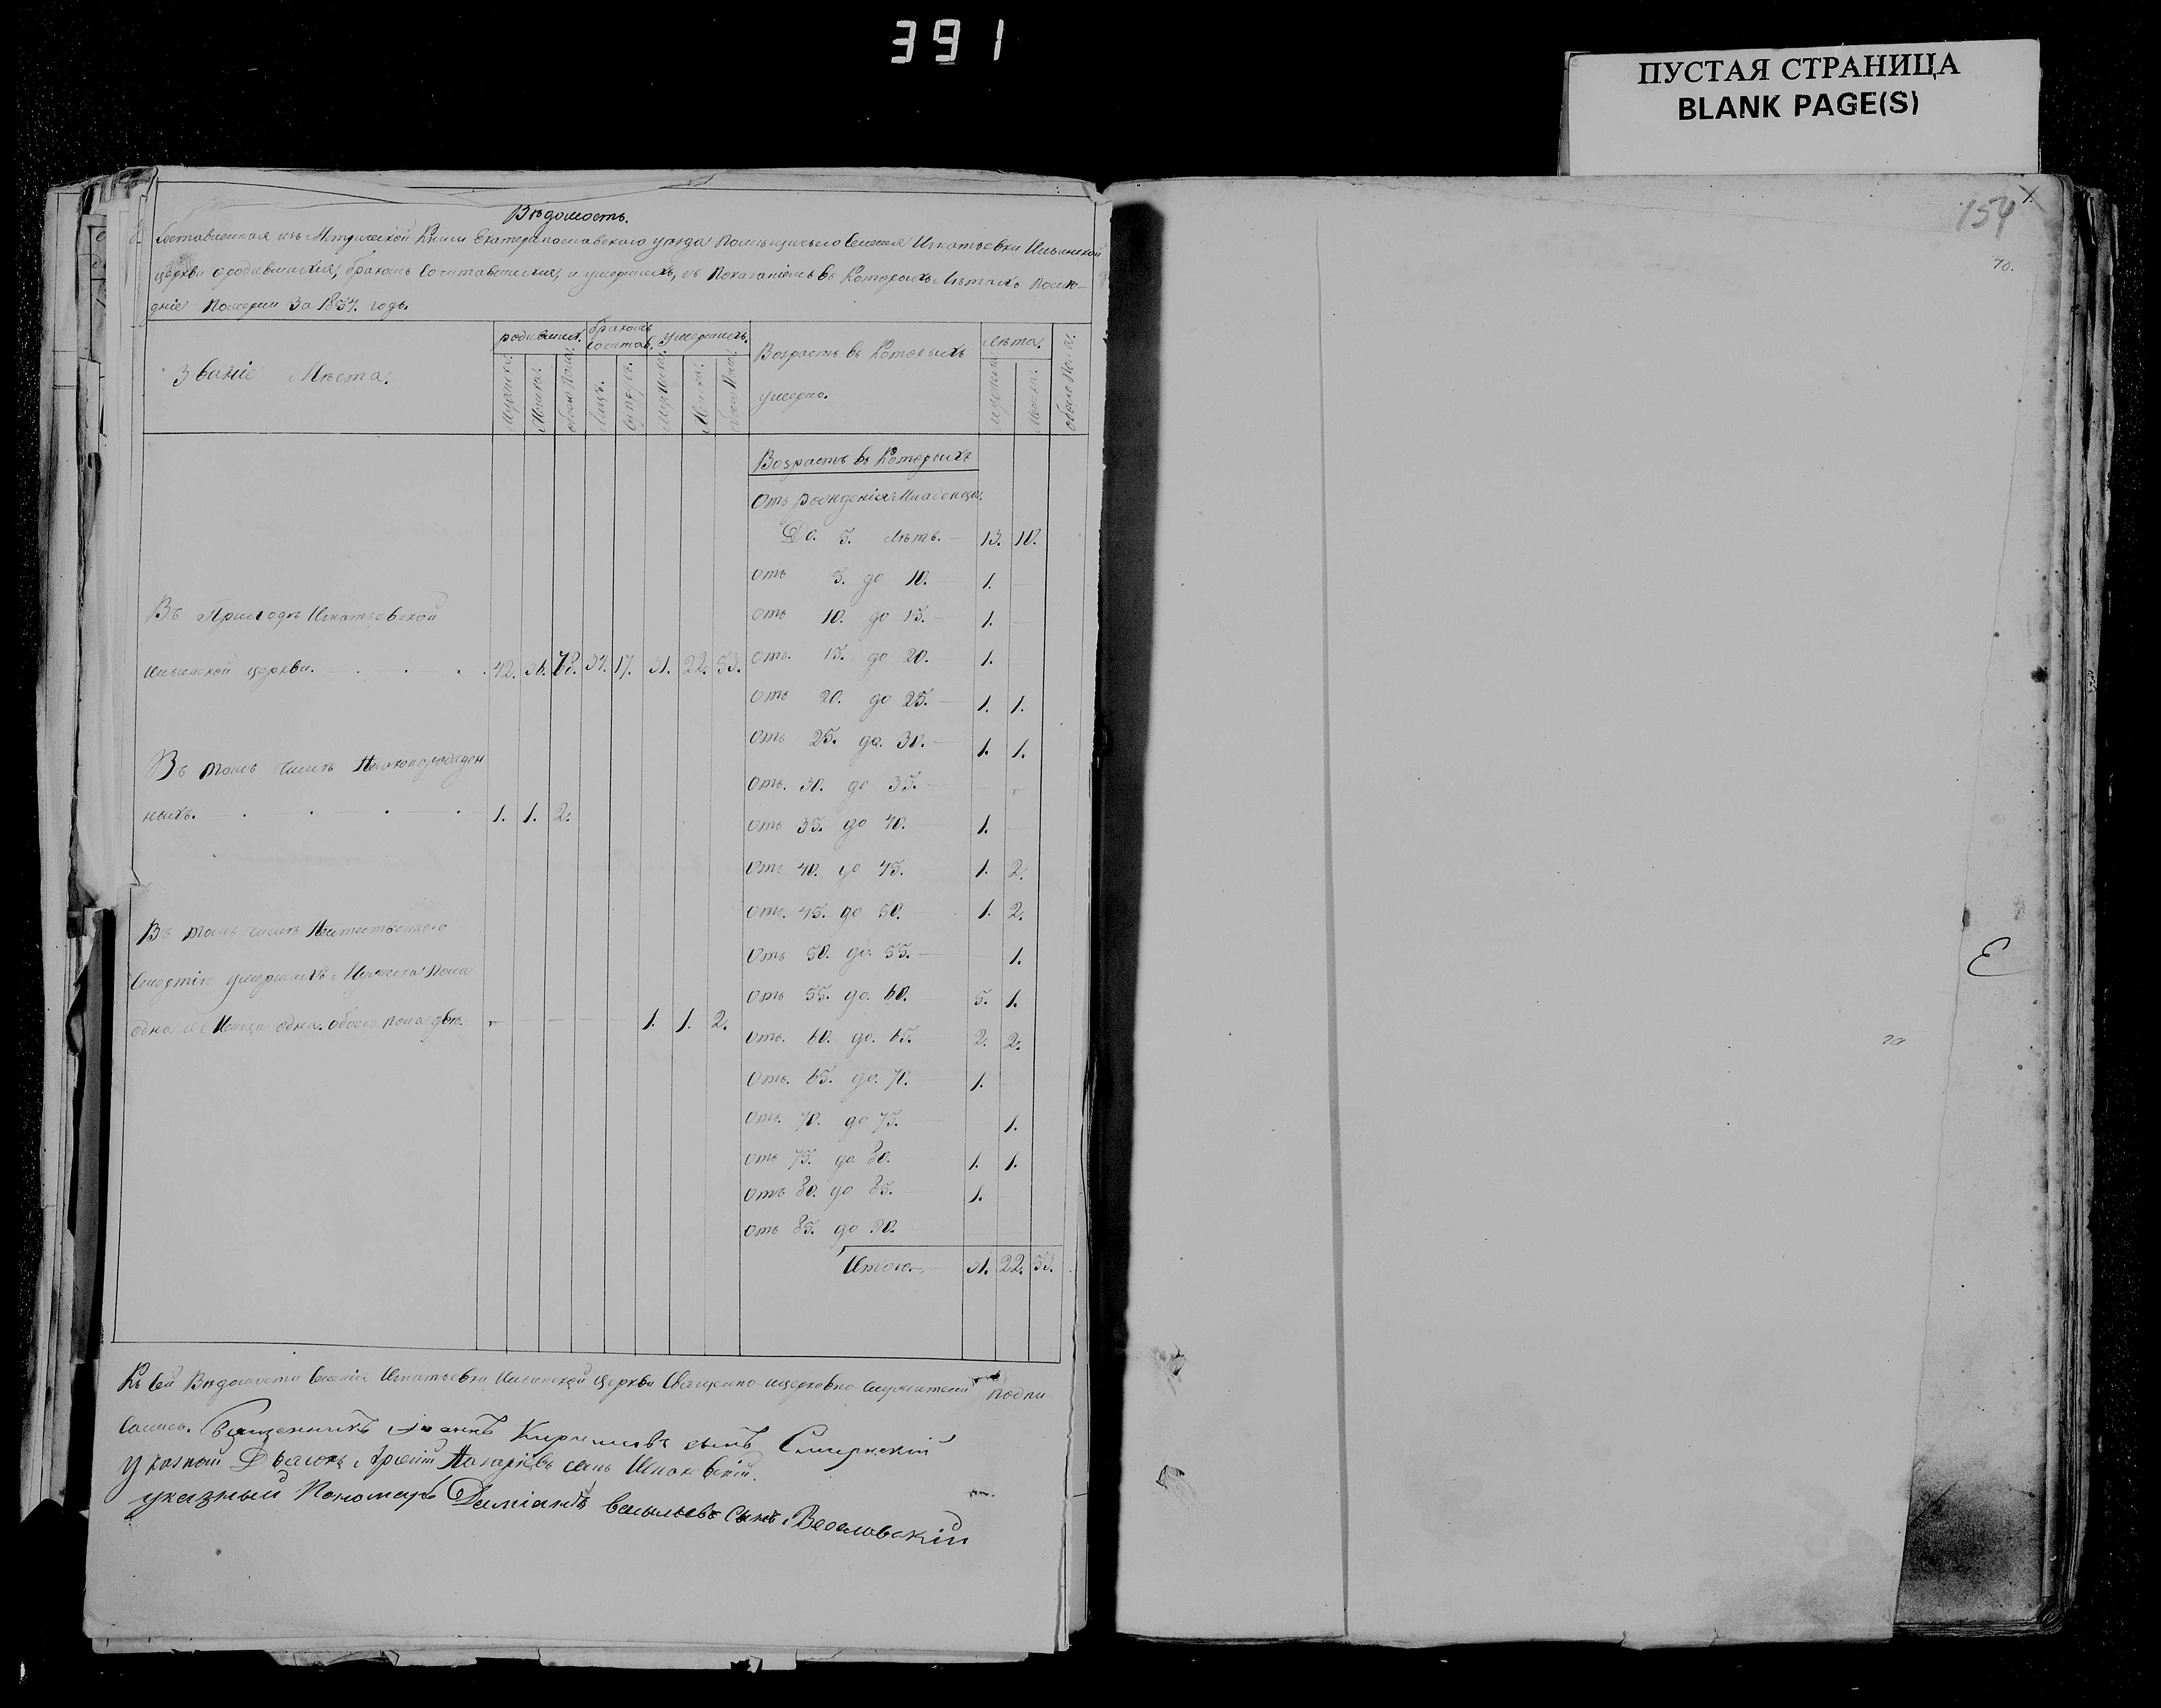 391
ПУСТАЯ СТРАНИЦА
BLANK PAGE(S)
154
70.
Вѣдомость.
Составленная изъ Метрической Книги Екатеринославскаго уѣзда Помѣщичьяго Селенія Игнатьевки Ильинской
церкви о родившихся, бракомъ Сочитавшихся, и умершихъ, съ Показаніемъ въ Которыхъ Лѣтахъ Послѣ-
дніе Померли За годъ.
Званіе Мѣста.
родивших. бракомъ Сочитав. умершихъ. Возрастъ въ Которыхъ умерло. Лѣта.
Мужска. Женска. обоего Пола. Лицъ. Супруж. Муж Пола. Женска. обоего Пола. Мужска. Женска. обоего Пола.
Возрастъ въ Которыхъ
Отъ рожденія Младенцы.
До. 5. Лѣтъ. 13. 10.
Отъ 5. до 10. 1.
Отъ 10. до 15. 1.
Въ Приходѣ Игнатьевской
Ильинской церкви. 42. 34. 17. 31. 22. 53.
Отъ. 15. до 20. 1.
Отъ 20. до 25. 1. 1.
Отъ 25. до. 30. 1. 1.
Въ томъ числѣ Незаконорожден
ныхъ. 1. 1. 2.
Отъ. 30. до 35.
Отъ 35. до 40. 1.
Отъ 40. до 45. 1. 2.
Отъ. 45. до 50. 1. 2.
Въ томъ числѣ Неестественною
Смертію умершихъ Мужеска Пола
одна и Женска одна. обоего пола двѣ. 1. 1. 2.
Отъ 50. до. 55. 1.
Отъ 55. до. 60. 5. 1.
Отъ. 60. до. 65. 2. 2.
Отъ. 65. до. 70. 1.
Отъ. 70. до 75. 1.
Отъ 75. до. 80. 1. 1.
Отъ 80. до 85. 1.
Отъ 85. до 90.
Итого 31. 22. 53.
Къ Сей Вѣдомости Селенія Игнатьевки Ильинской Церкви Священно-ицерковно Служители Подпи
сались. Священникъ Іоаннъ Кирилловъ сынъ
Указный Дьячокъ сынъ
указный Пономарь Даміанъ Васильевъ Сынъ Веселовскій